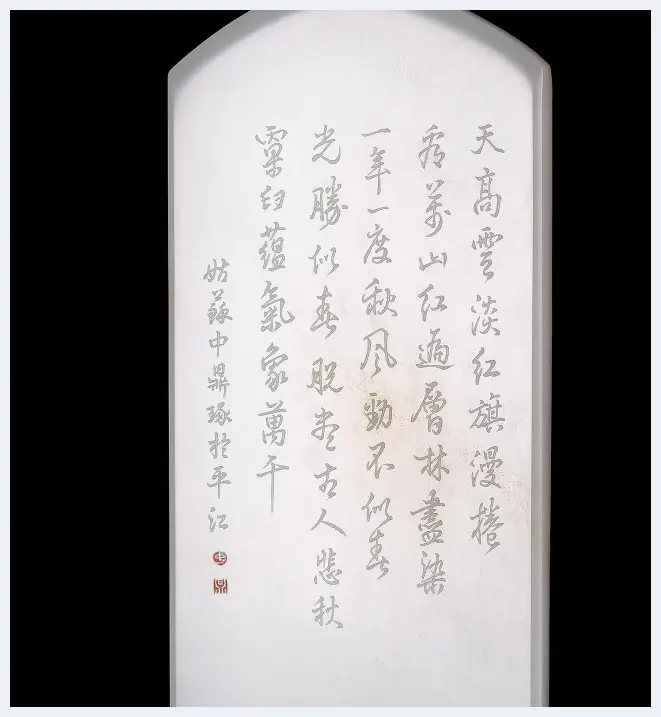 天高雲淡紅旗漫捲
看萬山紅遍層林盡染
一年一度秋風勁不似春
光勝似春脫盡古人悲秋
窠臼蘊氣象萬千
姑蘇中鼎琢於平江
鼎